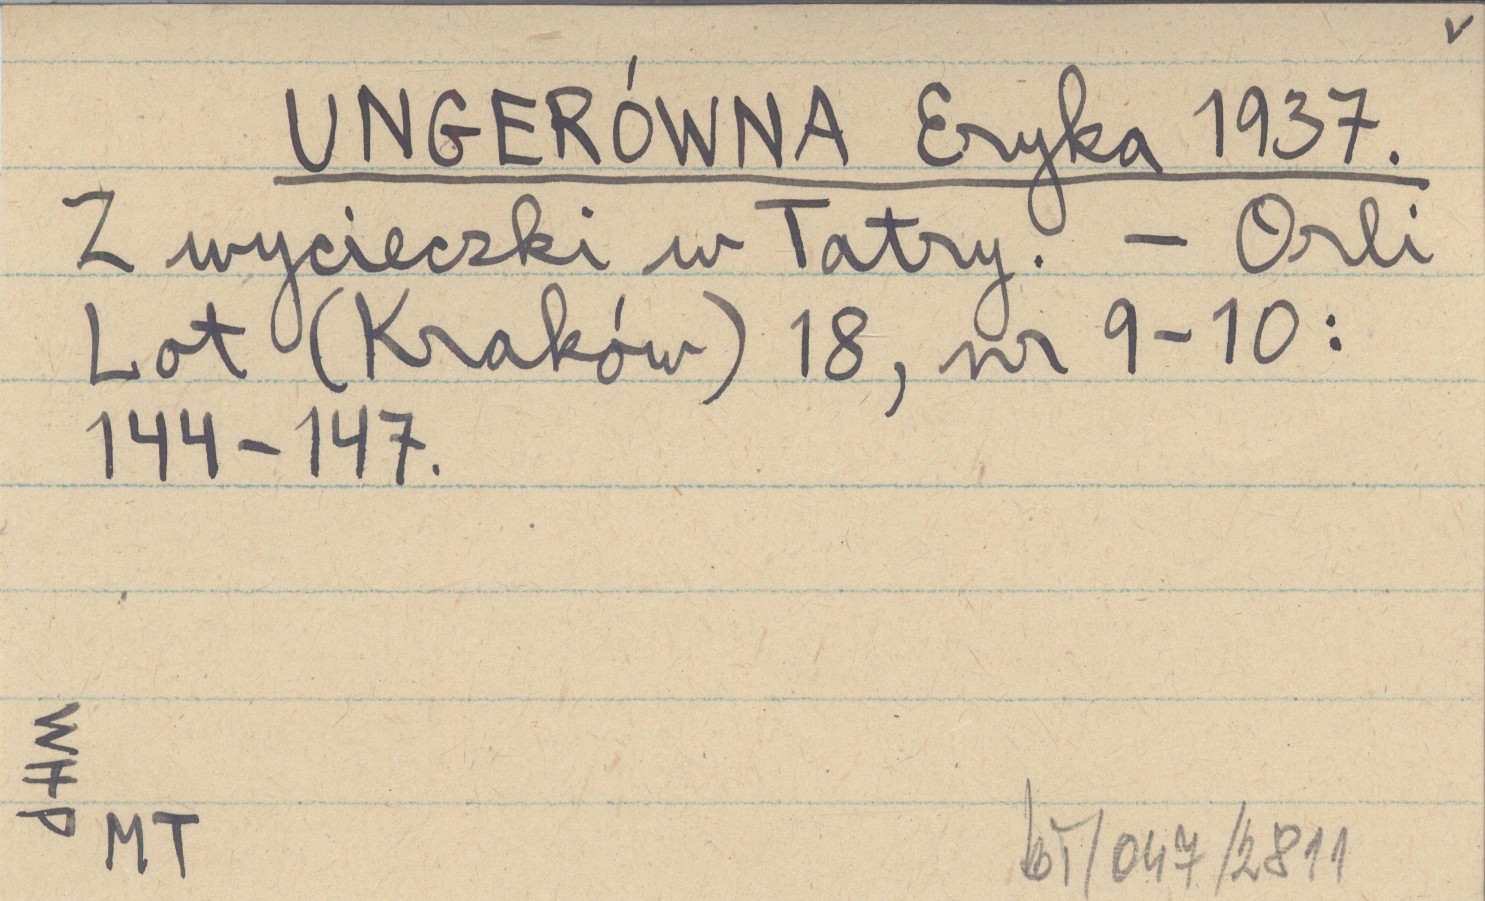 v
UNGERÓWNA Eryka 1937.
Z wycieczki w Tatry. – Orli
Lot (Kraków) 18, nr 9–10:
144–147.
WHP
MT
bT/047/2811